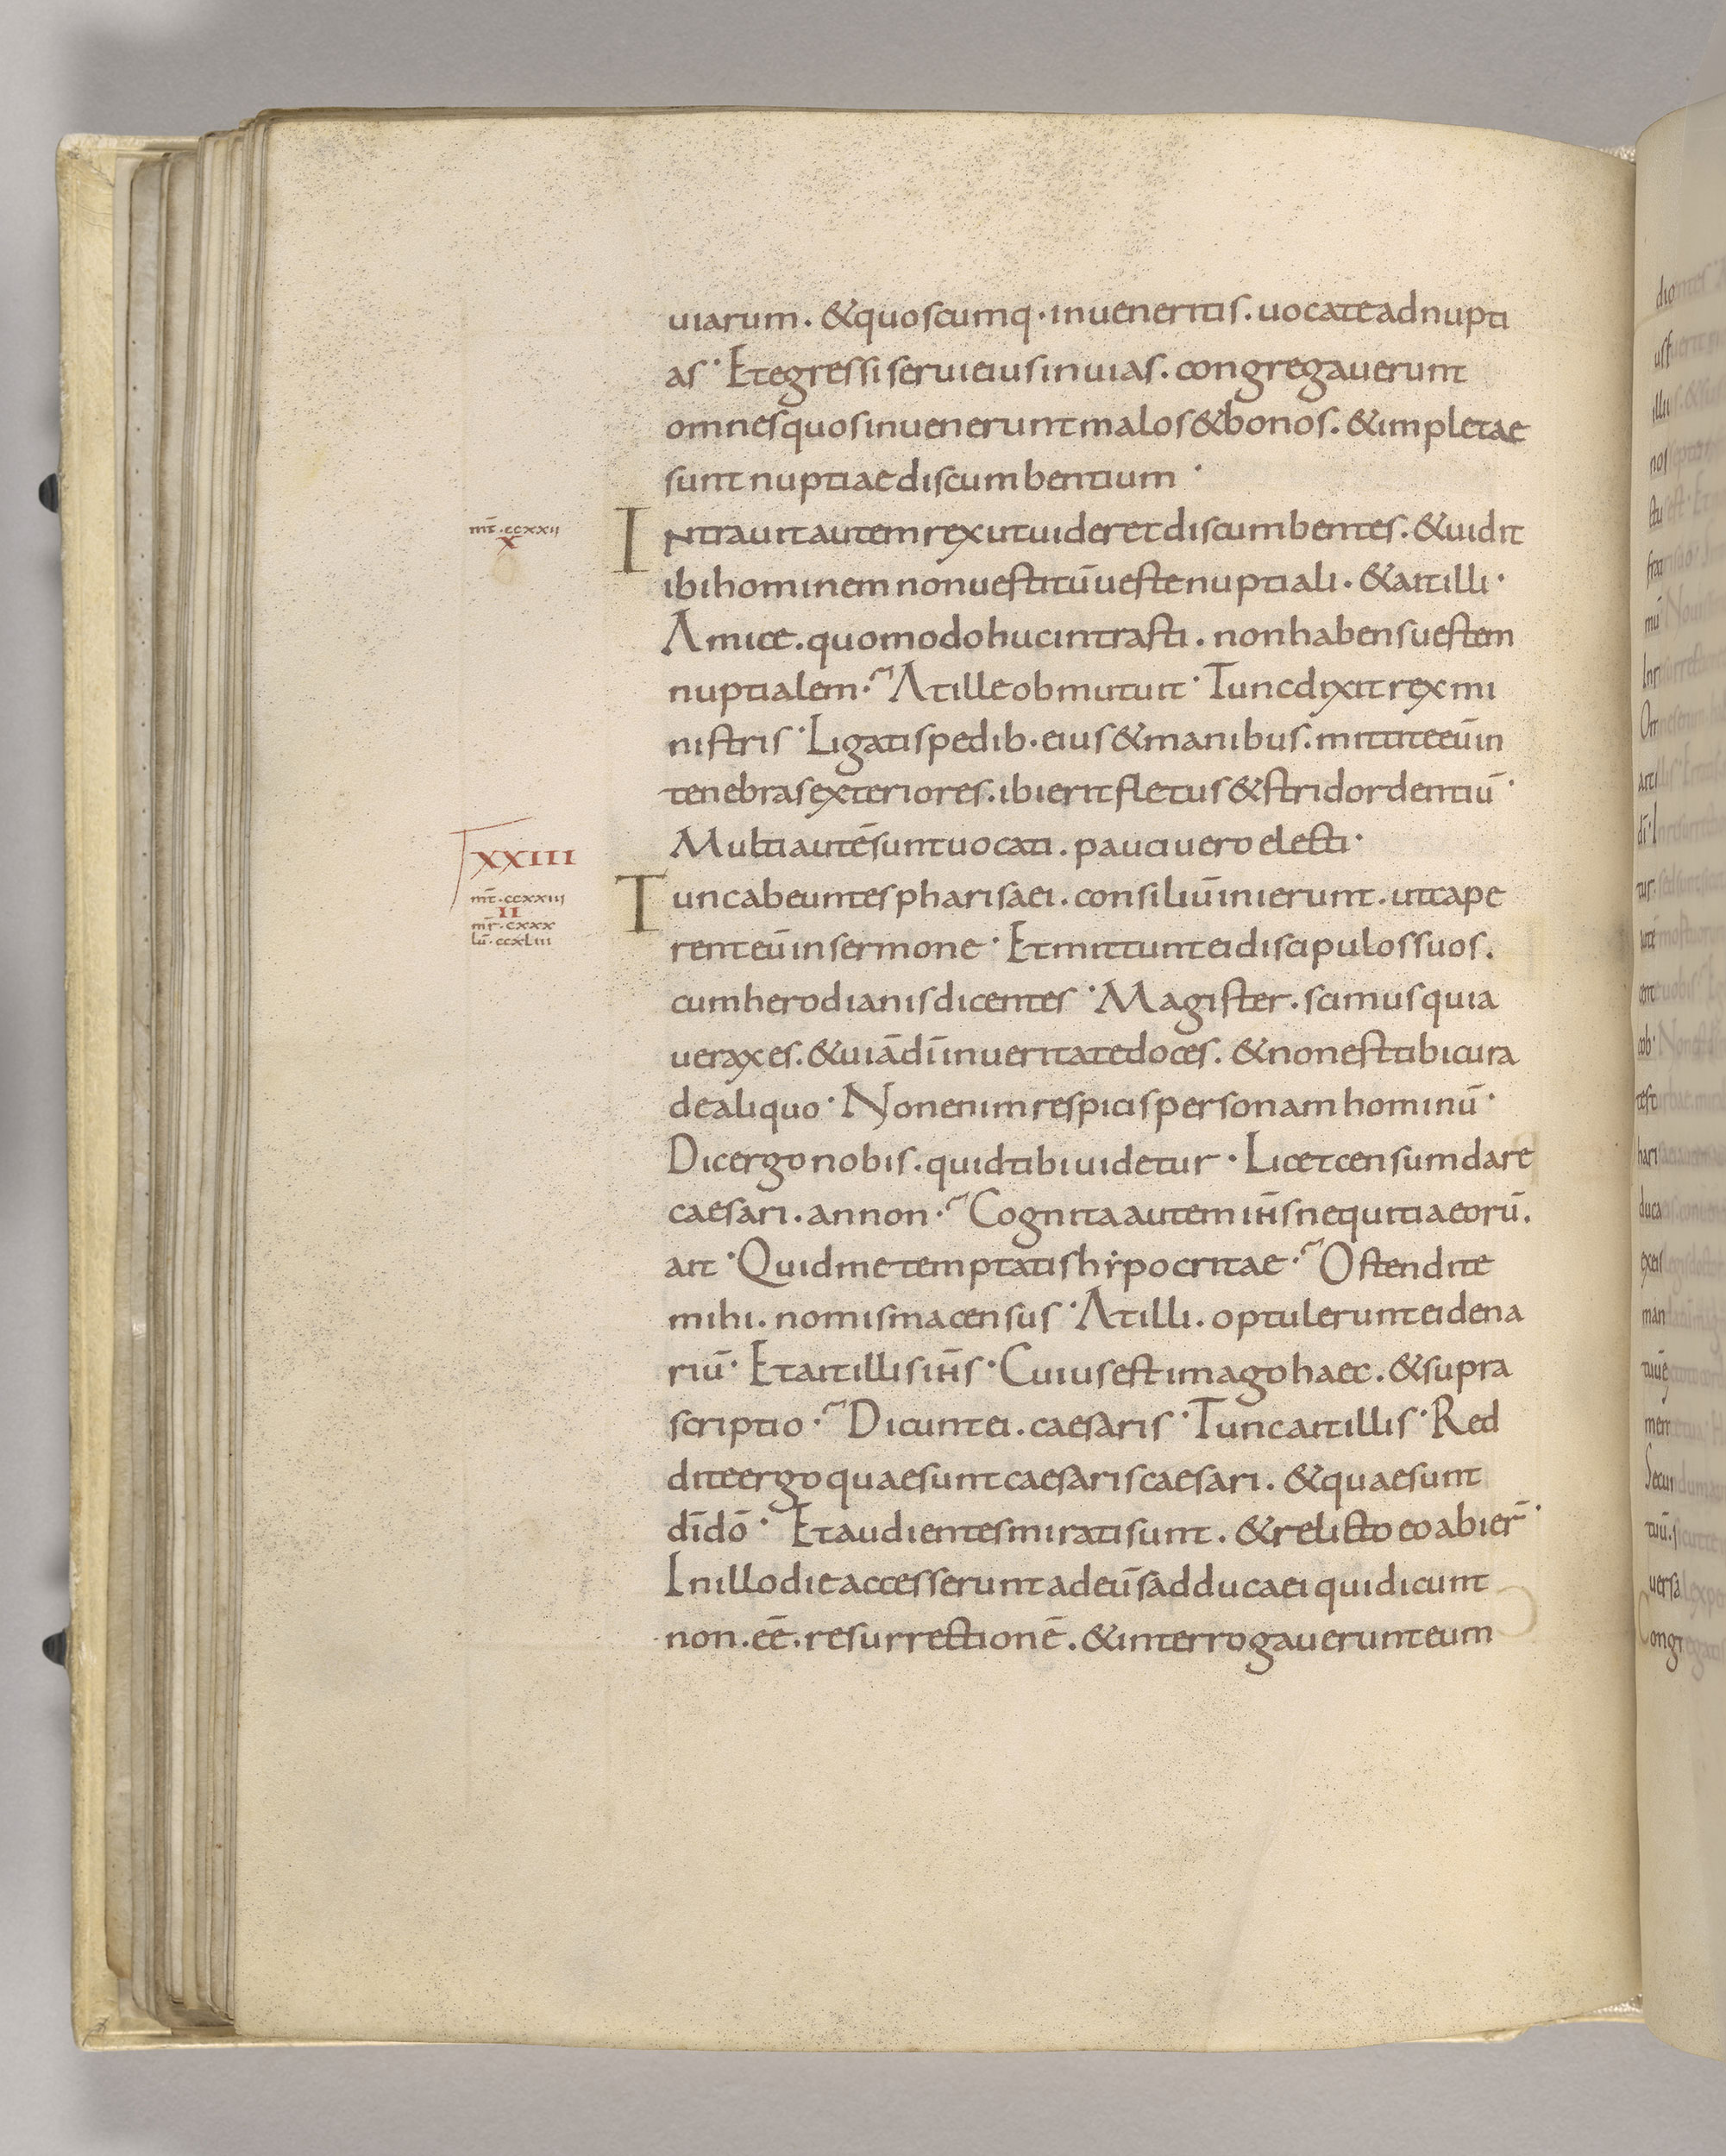 uiarum. &quoscumq· inueneritis. uocateadnupti
as· Etegressiseruieiusinuias. congregauerunt
omnesquosinueneruntmalos&bonos. &impletae
suntnuptiaediscumbentium·
mt̄.ccxxii
X
Intrauitautemrexutuideretdiscumbentes. &uidit
ibihominemnonuestitūuestenuptiali. &aitilli·
Amice. quomodohucintrasti. nonhabensuestem
nuptialem·? Atilleobmutuit· Tuncdixitrexmi
nistris· Ligatispedib·eius&manibus. mittiteeūin
tenebrasexteriores. ibieritfletus&stridordentiū·
Multiautēsuntuocati. pauciueroelecti·
XXIII
mt̄.ccxxiii
II
mr̄.cxxx
lū.ccxliii
Tuncabeuntespharisaei. consiliūinierunt. utcape
renteūinsermone· Etmittunteidiscipulossuos.
cumherodianisdicentes· Magister. scimusquia
ueraxes. &uiād̄iinueritatedoces. &nonesttibicura
dealiquo· Nonenimrespicispersonamhominū·
Dicergonobis. quidtibiuidetur· Licetcensumdare
caesari. annon·? Cognitaautemih̄snequitiaeorū.
ait· Quidmetemptatishẏpocritae·? Ostendite
mihi. nomismacensus· Atilli. optulerunteidena
riū· Etaitillisih̄s· Cuiusestimagohaec. &supra
scriptio·? Dicuntei. caesaris· Tuncaitillis· Red
diteergoquaesuntcaesariscaesari. &quaesunt
d̄id̄o· Etaudientesmiratisunt. &relictoeoabier̄·
Inillodieaccesseruntadeūsadducaeiquidicunt
non.eē.resurrectionē. &interrogauerunteum